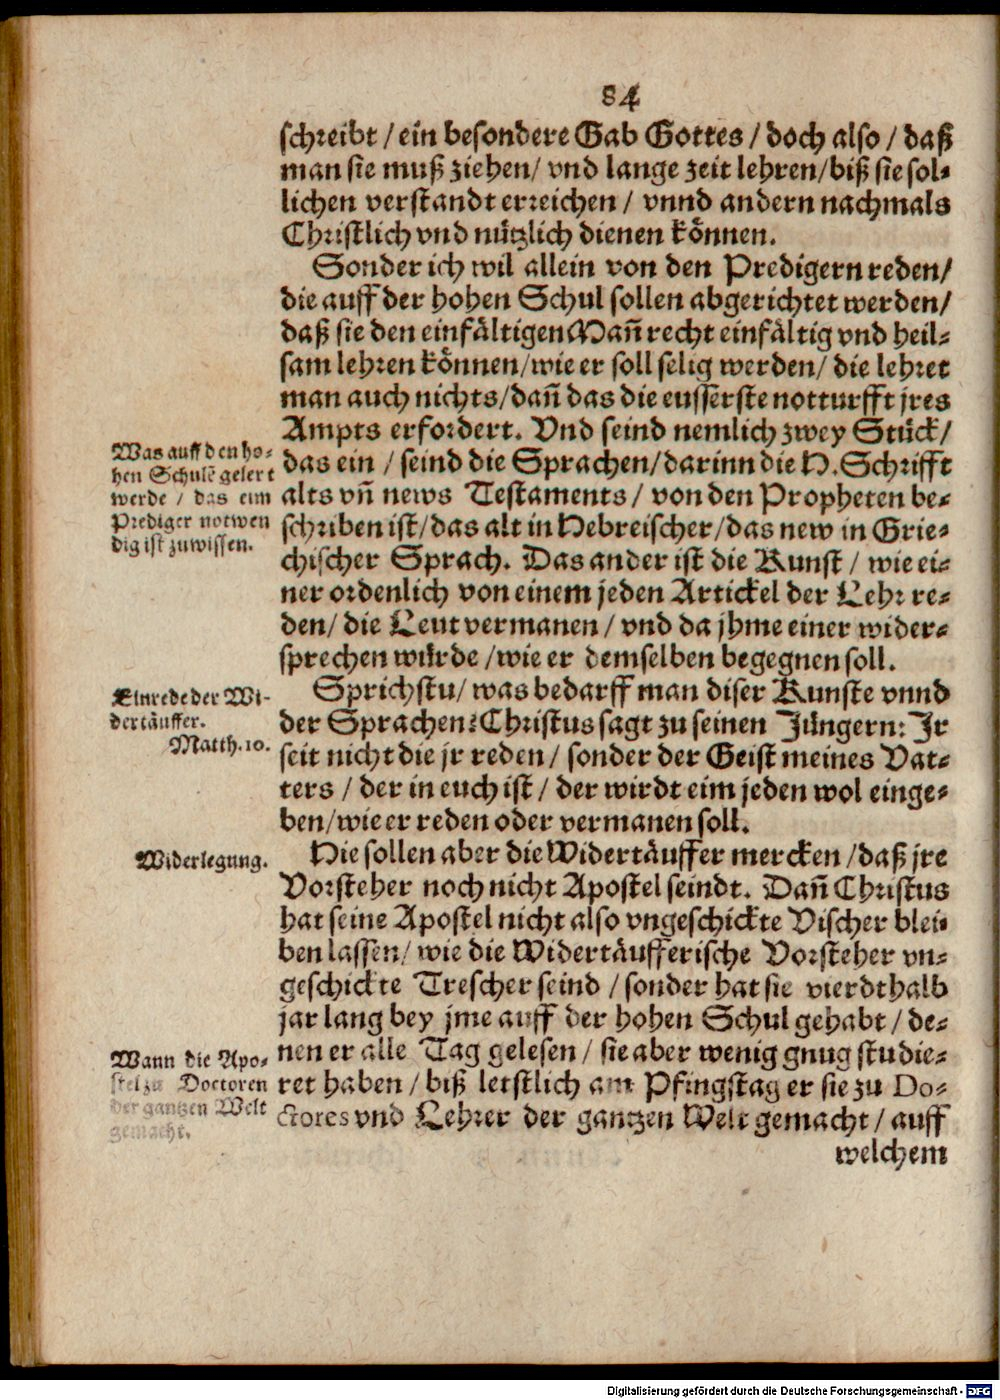 84
schreibt / ein besondere Gab Gottes / doch also / daß
man sie muß ziehen / vnd lange zeit lehren / biß sie sol⸗
lichen verstandt erreichen / vnnd andern nachmals
Christlich vnd nützlich dienen können.
Sonder ich wil allein von den Predigern reden /
die auff der hohen Schul sollen abgerichtet werden /
daß sie den einfältigen Mañ recht einfältig vnd heil⸗
sam lehren können / wie er soll selig werden / die lehret
man auch nichts / dañ das die eusserste notturfft jres
Ampts erfordert. Vnd seind nemlich zwey Stück /
Was auff den ho⸗
hen Schulẽ gelert
werde / das eim
Prediger notwen
dig ist zuwissen.
das ein / seind die Sprachen / darinn die H. Schrifft
alts vñ news Testaments / von den Propheten be⸗
schriben ist / das alt in Hebreischer / das new in Grie⸗
chischer Sprach. Das ander ist die Kunst / wie ei⸗
ner ordenlich von einem jeden Artickel der Lehr re⸗
den / die Leut vermanen / vnd da jhme einer wider⸗
sprechen würde / wie er demselben begegnen soll.
Einrede der Wi⸗
dertäuffer.
Matth. 10.
Sprichstu / was bedarff man diser Kunste vnnd
der Sprachen? Christus sagt zu seinen Jüngern: Jr
seit nicht die jr reden / sonder der Geist meines Vat⸗
ters / der in euch ist / der wirdt eim jeden wol einge⸗
ben / wie er reden oder vermanen soll.
Widerlegung.
Hie sollen aber die Widertäuffer mercken / daß jre
Vorsteher noch nicht Apostel seindt. Dañ Christus
hat seine Apostel nicht also vngeschickte Vischer blei⸗
ben lassen / wie die Widertäufferische Vorsteher vn⸗
geschickte Trescher seind / sonder hat sie vierdthalb
jar lang bey jme auff der hohen Schul gehabt / de⸗
Wann die Apo⸗
stel zu Doctoren
der gantzen Welt
gemacht.
nen er alle Tag gelesen / sie aber wenig gnug studie⸗
ret haben / biß letstlich am Pfingstag er sie zu Do-
ctores vnd Lehrer der gantzen Welt gemacht / auff
welchem
Digitalisierung gefördert durch die Deutsche Forschungsgemeinschaft - DFG